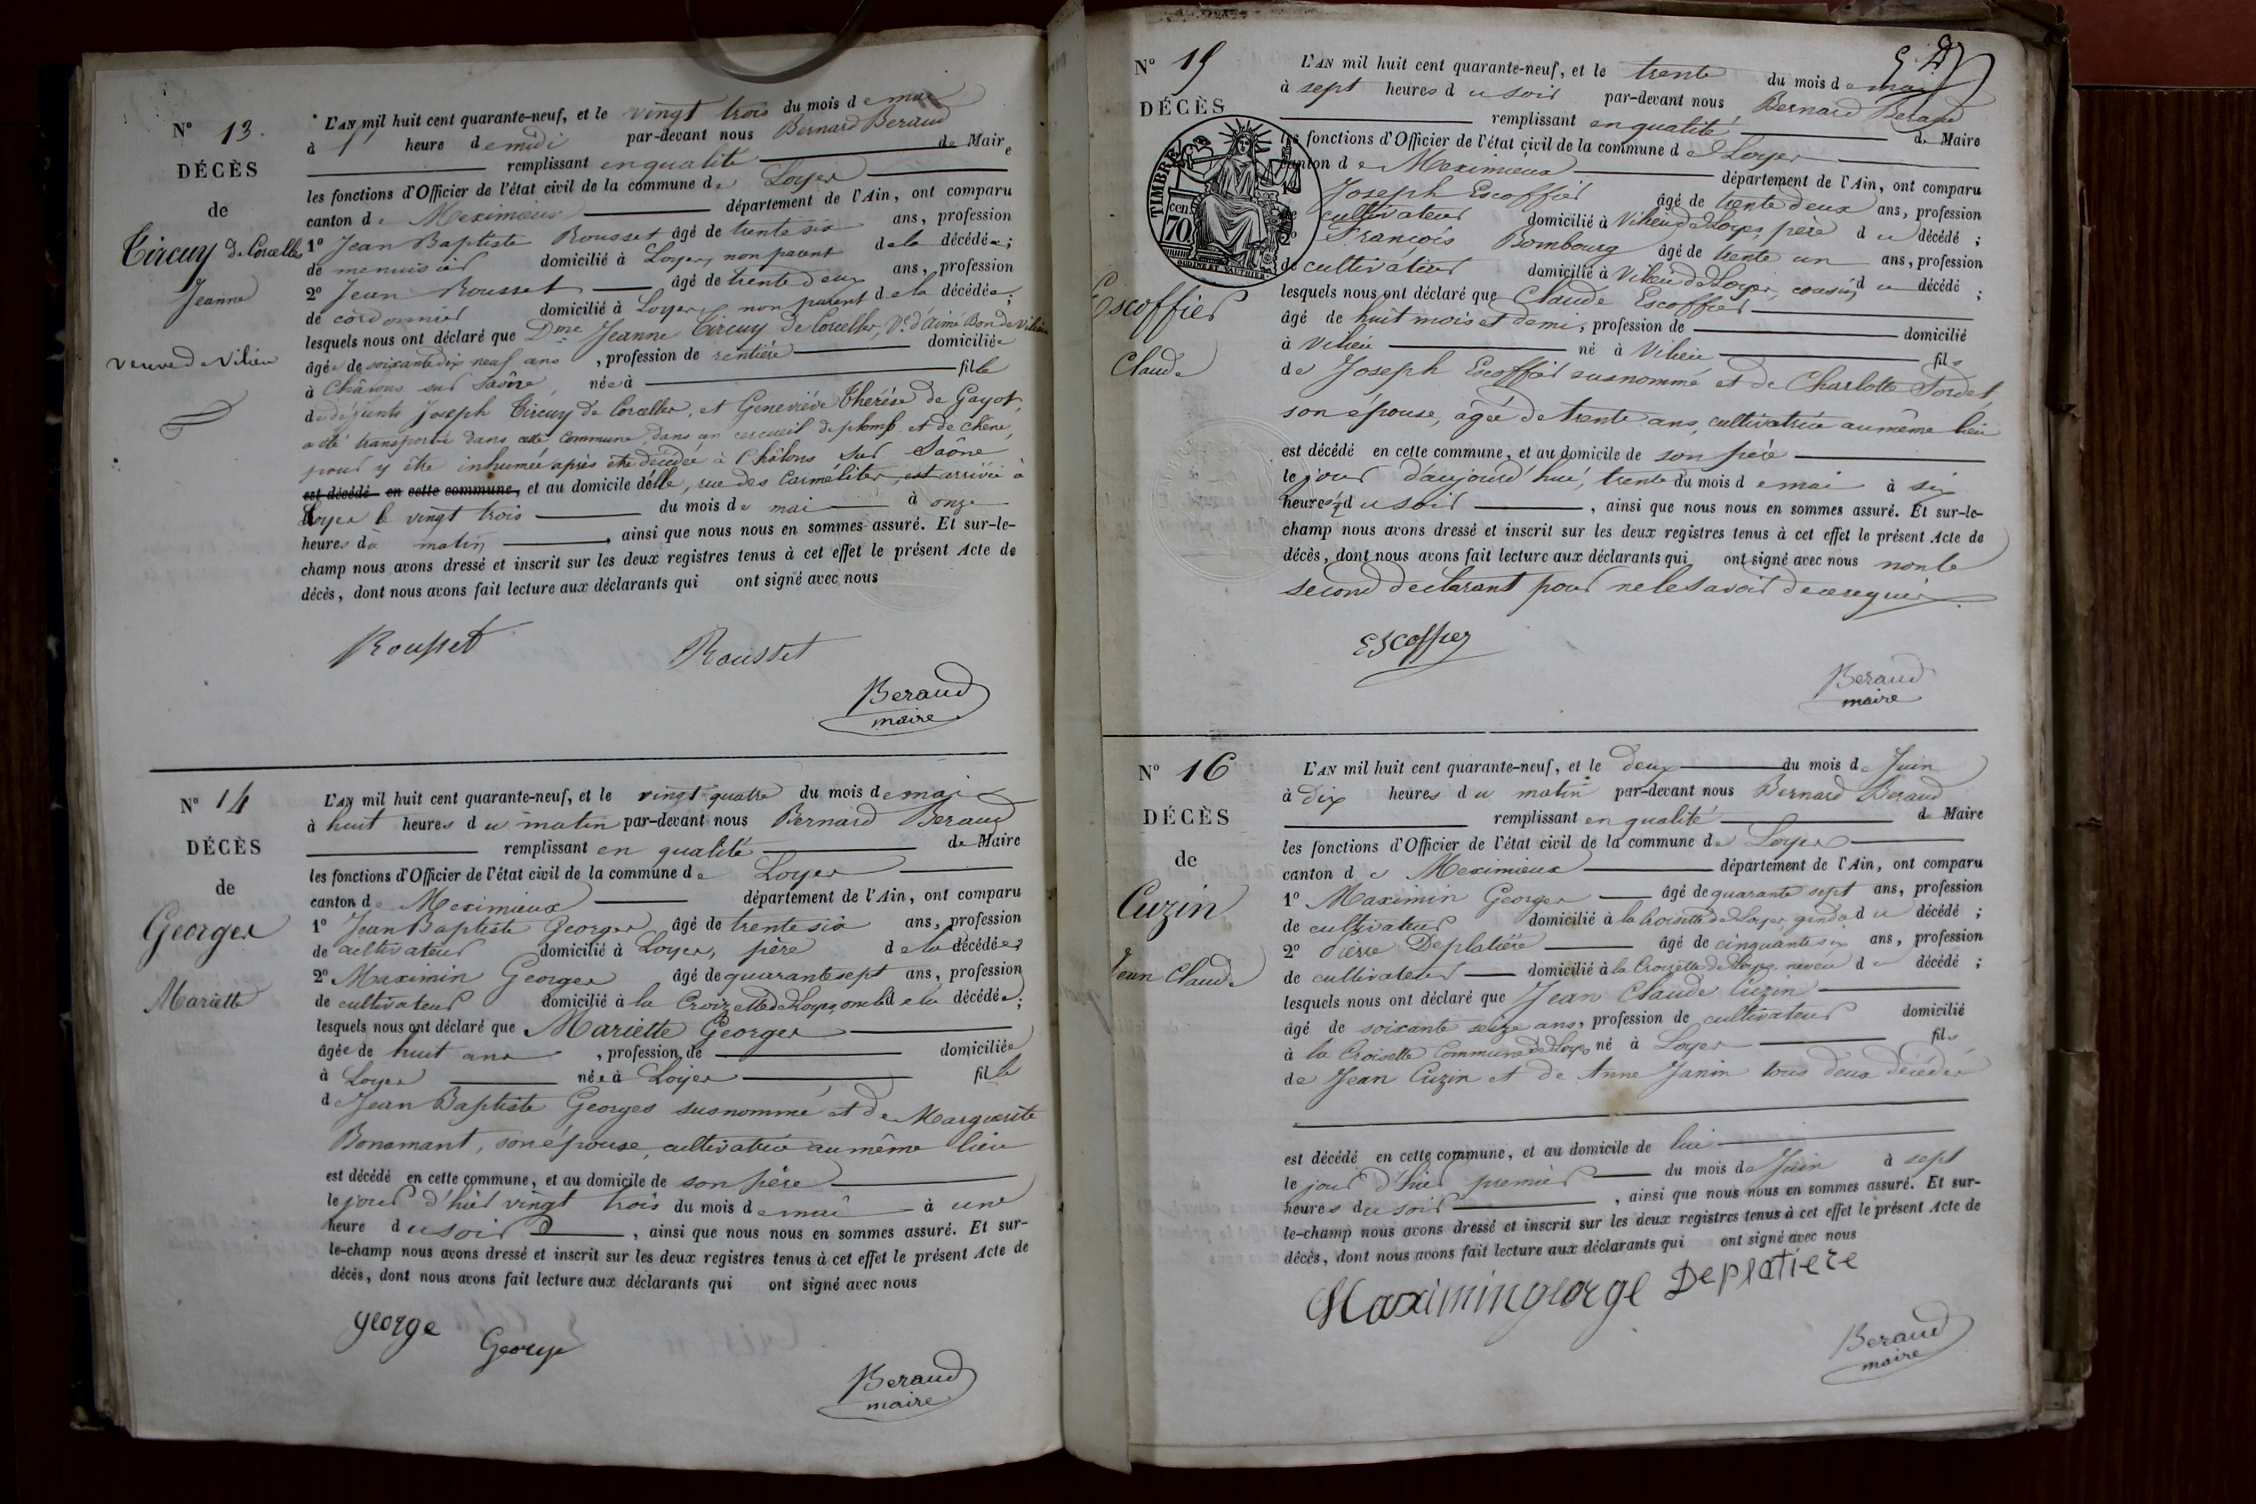 N° 13.
DÉCÈS
de
Circuy de Corcelles
Jeanne
veuve de Vilieu
L'AN mil huit cent quarante-neuf, et le vingt trois du mois de mai
à 1 heure de midi par-devant nous Bernard Beraud
remplissant en qualité de Maire
les fonctions d'Officier de l'état civil de la commune de Loyes
canton de Meximieux département de l'Ain, ont comparu
1° Jean Baptiste Rousset âgé de trente six ans, profession
de menuisier domicilié à Loyes, non parent de la décédée;
2° Jean Rousset âgé de trente deux ans, profession
de cordonnier domicilié à Loyes, non parent de la décédée;
lesquels nous ont déclaré que Dme Jeanne Circuy de Corcelles, Ve d'Aimé Bon de Vilieu
âgée de soixante dix neuf ans, profession de rentière domiciliée
à Châlons sur Saône, née à fille
de défunts Joseph Circuy de Corcelles, et Geneviève Thérèse de Gayot,
a été transportée dans cette commune, dans un cercueil de plomb et de chêne,
pour y être inhumée après être décédée à Châlons sur Saône
est décédé en cette commune, et au domicile d'elle, rue des Carmélites, est arrivée à
Loyes le vingt trois du mois de mai à onze
heures du matin, ainsi que nous nous en sommes assuré. Et sur-le-
champ nous avons dressé et inscrit sur les deux registres tenus à cet effet le présent Acte de
décès, dont nous avons fait lecture aux déclarants qui ont signé avec nous
Rousset Rousset
Beraud
maire
N° 14
DÉCÈS
de
Georges
Mariette
L'AN mil huit cent quarante-neuf, et le vingt quatre du mois de mai
à huit heures du matin par-devant nous Bernard Beraud
remplissant en qualité de Maire
les fonctions d'Officier de l'état civil de la commune de Loyes
canton de Meximieux département de l'Ain, ont comparu
1° Jean Baptiste Georges âgé de trente six ans, profession
de cultivateur domicilié à Loyes, père de la décédée;
2° Maximin Georges âgé de quarante sept ans, profession
de cultivateur domicilié à la Croizette de Loyes, oncle de la décédée;
lesquels nous ont déclaré que Mariette Georges
âgée de huit ans, profession de domiciliée
à Loyes née à Loyes fille
de Jean Baptiste Georges susnommé et de Marguerite
Bonamant, son épouse, cultivatrice au même lieu
est décédé en cette commune, et au domicile de son père
le jour d'hier vingt trois du mois de mai à une
heure du soir, ainsi que nous nous en sommes assuré. Et sur-
le-champ nous avons dressé et inscrit sur les deux registres tenus à cet effet le présent Acte de
décès, dont nous avons fait lecture aux déclarants qui ont signé avec nous
george George
Beraud
maire
N° 15
DÉCÈS
TIMBRE
70
cen
Escoffier
Claude
L'AN mil huit cent quarante-neuf, et le trente du mois de mai
à sept heures du soir par-devant nous Bernard Beraud
remplissant en qualité de Maire
les fonctions d'Officier de l'état civil de la commune de Loyes
canton de Meximieux département de l'Ain, ont comparu
Joseph Escoffier âgé de trente deux ans, profession
de cultivateur domicilié à Vilieu de Loyes, père du décédé;
François Bombourg âgé de trente un ans, profession
de cultivateur domicilié à Vilieu de Loyes, cousin du décédé;
lesquels nous ont déclaré que Claude Escoffier
âgé de huit mois et demi, profession de domicilié
à Vilieu né à Vilieu fils
de Joseph Escoffier susnommé et de Charlotte Sordet,
son épouse, âgée de trente ans, cultivatrice au même lieu
est décédé en cette commune, et au domicile de son père
le jour d'aujourd'hui, trente du mois de mai à six
heures 1/2 du soir, ainsi que nous nous en sommes assuré. Et sur-le-
champ nous avons dressé et inscrit sur les deux registres tenus à cet effet le présent Acte de
décès, dont nous avons fait lecture aux déclarants qui ont signé avec nous non le
second déclarant pour ne le savoir de ce requis
Escoffier
Beraud
maire
N° 16
DÉCÈS
de
Cuzin
Jean Claude
L'AN mil huit cent quarante-neuf, et le deux du mois de Juin
à dix heures du matin par-devant nous Bernard Beraud
remplissant en qualité de Maire
les fonctions d'Officier de l'état civil de la commune de Loyes
canton de Meximieux département de l'Ain, ont comparu
1° Maximin Georges âgé de quarante sept ans, profession
de cultivateur domicilié à la Croisette de Loyes, gendre du décédé;
2° Pierre Deplatière âgé de cinquante six ans, profession
de cultivateur domicilié à la Croizette de Loyes, neveu du décédé;
lesquels nous ont déclaré que Jean Claude Cuzin
âgé de soixante seize ans, profession de cultivateur domicilié
à la Croisette Commune de Loyes né à Loyes fils
de Jean Cuzin et de Anne Janin tous deux décédés
est décédé en cette commune, et au domicile de lui
le jour d'hier premier du mois de Juin à sept
heures du soir, ainsi que nous nous en sommes assuré. Et sur-
le-champ nous avons dressé et inscrit sur les deux registres tenus à cet effet le présent Acte de
décès, dont nous avons fait lecture aux déclarants qui ont signé avec nous
Maximin george Deplatiere
Beraud
maire